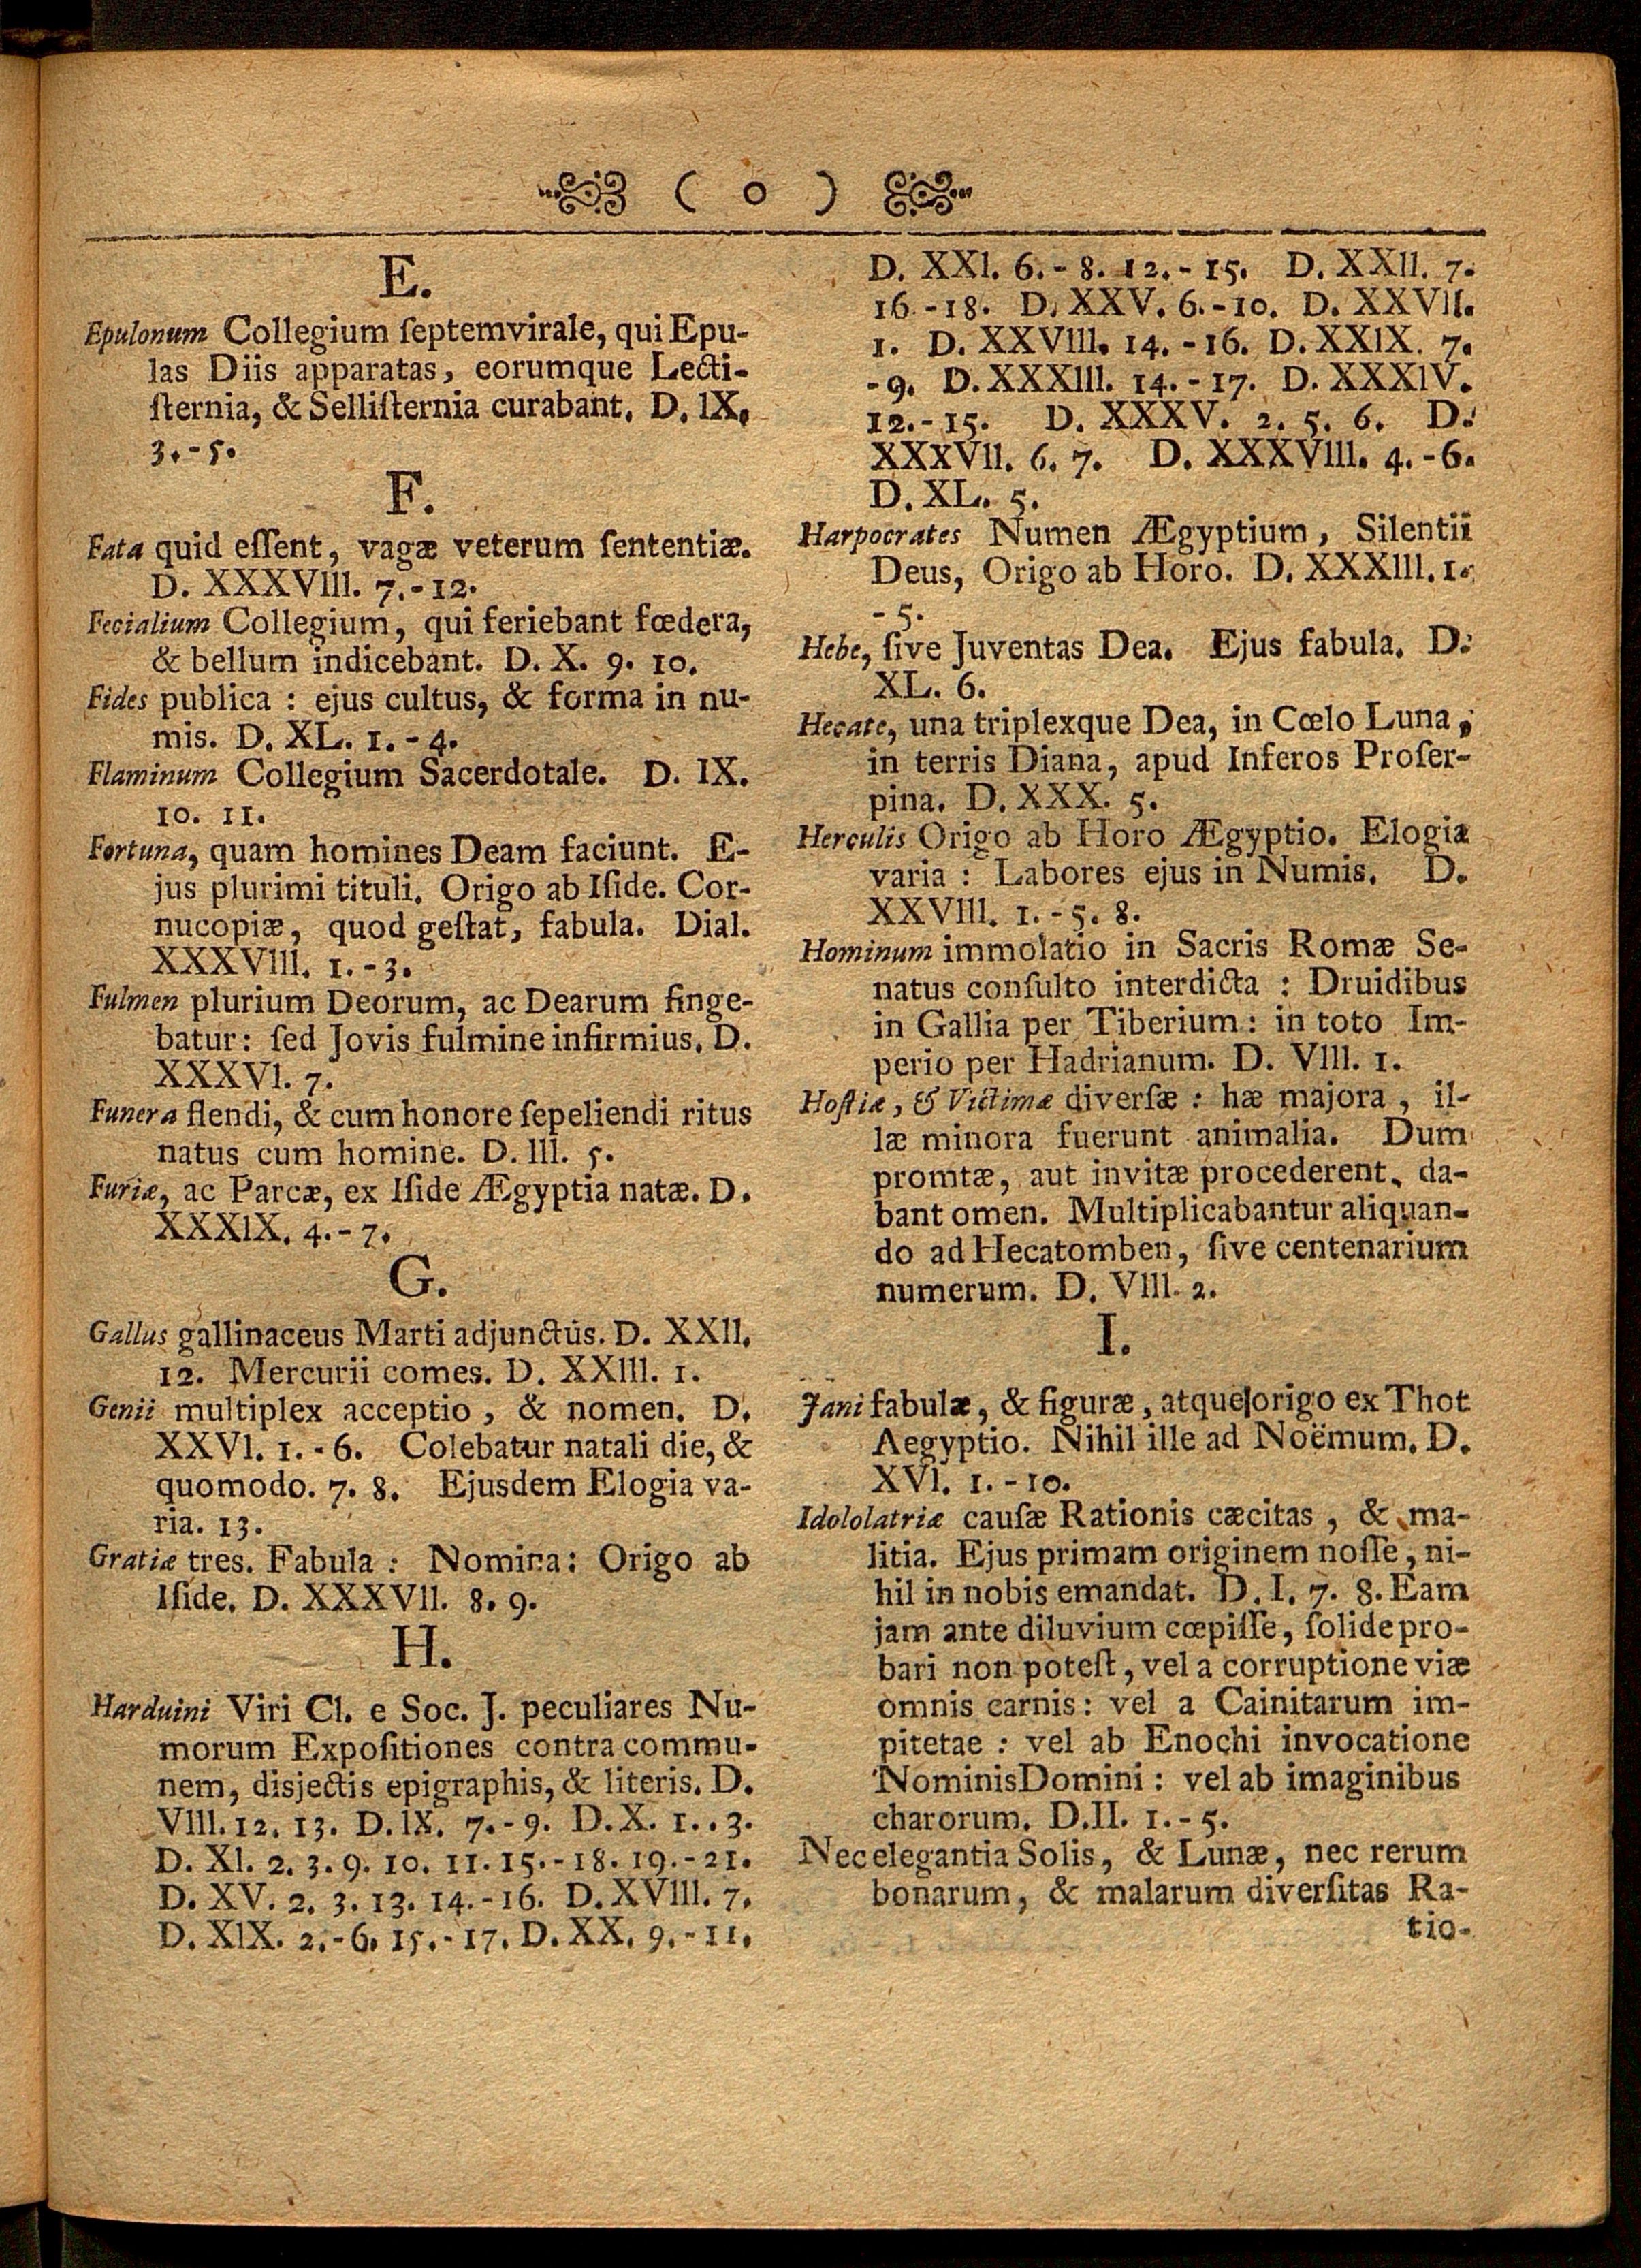 ( o )
E.
Epulonum Collegium ſeptemvirale, qui Epu-
las Diis apparatas, eorumque Lecti-
ſternia, & Selliſternia curabant. D. lX.
3.-5.
F.
Fata quid eſſent, vagæ veterum ſententiæ.
D. XXXVlll. 7.-12.
Fecialium Collegium, qui feriebant fœdera,
& bellum indicebant. D. X. 9. 10.
Fides publica : ejus cultus, & forma in nu-
mis. D. XL. 1. - 4.
Flaminum Collegium Sacerdotale. D. IX.
10. 11.
Fortuna, quam homines Deam faciunt. E-
jus plurimi tituli. Origo ab Iſide. Cor-
nucopiæ, quod geſtat, fabula. Dial.
XXXVlll. 1. - 3.
Fulmen plurium Deorum, ac Dearum finge-
batur: ſed Jovis fulmine infirmius. D.
XXXVl. 7.
Funera flendi, & cum honore ſepeliendi ritus
natus cum homine. D. lll. 5.
Furiæ, ac Parcæ, ex Iſide Ægyptia natæ. D.
XXXlX. 4. - 7.
G.
Gallus gallinaceus Marti adjunctus. D. XXll.
12. Mercurii comes. D. XXlll. 1.
Genii multiplex acceptio, & nomen. D.
XXVl. 1. - 6. Colebatur natali die, &
quomodo. 7. 8. Ejusdem Elogia va-
ria. 13.
Gratiæ tres. Fabula : Nomina: Origo ab
Iſide. D. XXXVll. 8. 9.
H.
Harduini Viri Cl. e Soc. J. peculiares Nu-
morum Expoſitiones contra commu-
nem, disjectis epigraphis, & literis. D.
Vlll. 12. 13. D. lX. 7.-9. D. X. 1..3.
D. Xl. 2. 3. 9. 10. 11. 15.-18. 19.-21.
D. XV. 2. 3. 13. 14.-16. D. XVlll. 7.
D. XlX. 2.-6. 15.-17. D. XX. 9.-11.
D. XXl. 6.-8. 12.-15. D. XXll. 7.
16.-18. D. XXV. 6.-10. D. XXVll.
1. D. XXVlll. 14.-16. D. XXlX. 7.
-9. D. XXXlll. 14.-17. D. XXXlV.
12.-15. D. XXXV. 2. 5. 6. D.
XXXVll. 6. 7. D. XXXVlll. 4.-6.
D. XL. 5.
Harpocrates Numen Ægyptium, Silentii
Deus, Origo ab Horo. D. XXXlll. 1.
- 5.
Hebe, ſive Juventas Dea. Ejus fabula. D.
XL. 6.
Hecate, una triplexque Dea, in Cœlo Luna,
in terris Diana, apud Inferos Proſer-
pina. D. XXX. 5.
Herculis Origo ab Horo Ægyptio. Elogia
varia : Labores ejus in Numis. D.
XXVlll. 1. - 5. 8.
Hominum immolatio in Sacris Romæ Se-
natus conſulto interdicta : Druidibus
in Gallia per Tiberium : in toto Im-
perio per Hadrianum. D. Vlll. 1.
Hoſtiæ, & Victimæ diverſæ : hæ majora, il-
læ minora fuerunt animalia. Dum
promtæ, aut invitæ procederent, da-
bant omen. Multiplicabantur aliquan-
do ad Hecatomben, ſive centenarium
numerum. D. Vlll. 2.
I.
Jani fabulæ, & figuræ, atque origo ex Thot
Aegyptio. Nihil ille ad Noëmum. D.
XVl. 1. - 10.
Idololatriæ cauſæ Rationis cæcitas, & ma-
litia. Ejus primam originem noſſe, ni-
hil in nobis emandat. D. I. 7. 8. Eam
jam ante diluvium cœpiſſe, ſolide pro-
bari non poteſt, vel a corruptione viæ
omnis carnis: vel a Cainitarum im-
pitetae : vel ab Enochi invocatione
Nominis Domini : vel ab imaginibus
charorum. D. II. 1. - 5.
Nec elegantia Solis, & Lunæ, nec rerum
bonarum, & malarum diverſitas Ra-
tio-